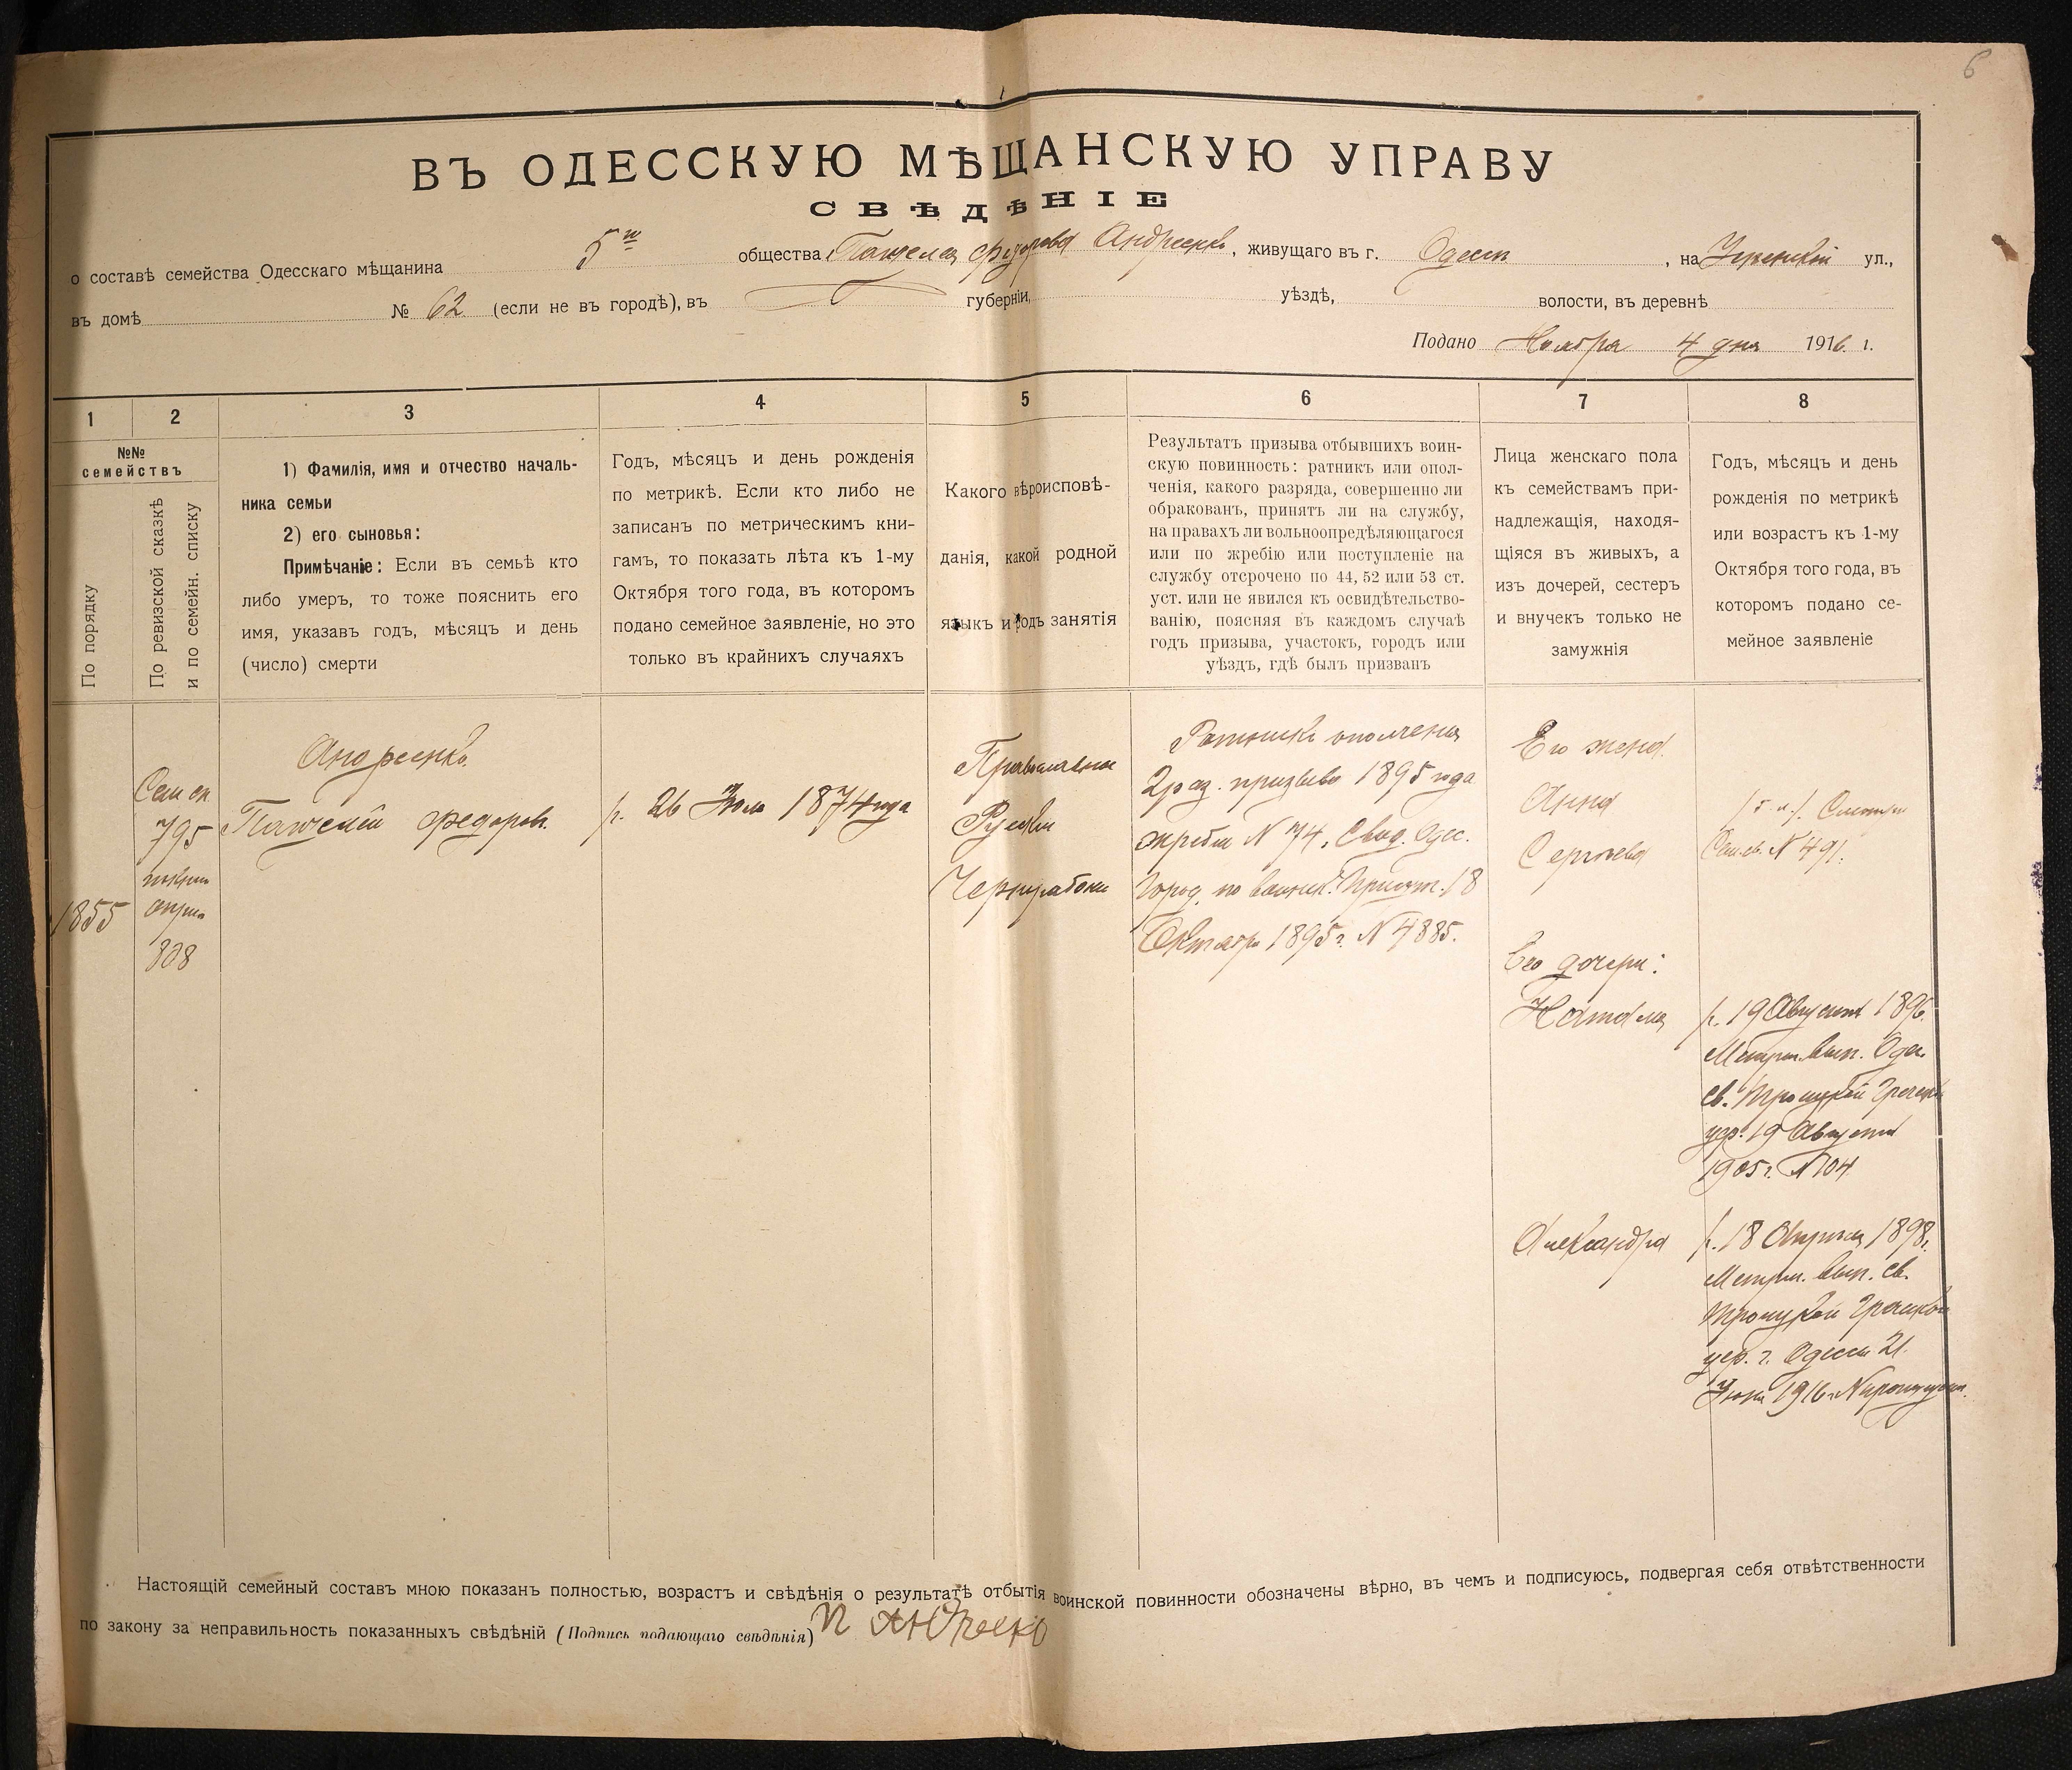 6
ВЪ ОДЕССКУЮ МѢЩАНСКУЮ УПРАВУ
СВѢДѢНІЕ
о составѣ семейства Одесскаго мѣщанина 5го общества Пантелея Федорова Андреенко, живущаго въ г. Одессѣ, на ул.,
въ домѣ № 62 (если не въ городѣ), въ губерніи, уѣздѣ, волости, въ деревнѣ
Подано Ноября 4 дня 1916 г.
1 2 3 4 5 6 7 8
№№
семействъ
По порядку
По ревизской сказкѣ
и по семейн. списку
1) Фамилія, имя и отчество началь-
ника семьи
2) его сыновья:
Примѣчаніе: Если въ семьѣ кто
либо умеръ, то тоже пояснить его
имя, указавъ годъ, мѣсяцъ и день
(число) смерти
Годъ, мѣсяцъ и день рожденія
по метрикѣ. Если кто либо не
записанъ по метрическимъ кни-
гамъ, то показать лѣта къ 1-му
Октября того года, въ которомъ
подано семейное заявленіе, но это
только въ крайнихъ случаяхъ
Какого вѣроисповѣ-
данія, какой родной
языкъ и родъ занятія
Результатъ призыва отбывшихъ воин-
скую повинность: ратникъ или опол-
ченія, какого разряда, совершенно ли
обракованъ, принятъ ли на службу,
на правахъ ли вольноопредѣляющагося
или по жребію или поступленіе на
службу отсрочено по 44, 52 или 53 ст.
уст. или не явился къ освидѣтельство-
ванію, поясняя въ каждомъ случаѣ
годъ призыва, участокъ, городъ или
уѣздъ, гдѣ былъ призванъ
Лица женскаго пола
къ семействамъ при-
надлежащія, находя-
щіяся въ живыхъ, а
изъ дочерей, сестеръ
и внучекъ только не
замужнія
Годъ, мѣсяцъ и день
рожденія по метрикѣ
или возрастъ къ 1-му
Октября того года, въ
которомъ подано се-
мейное заявленіе
1855
Сем сп
795
808
Андреенко
Пантелей Федоровъ
р. 26 Іюля 1874 года
Православное
Русскій
Чернорабочій
Ратникъ ополченія
2 раз. призыва 1895 года
жребій N 74, Свид. Одес.
Город. по воинск. Присут. 18
Октября 1895 г. N 4885.
Его жена
Анна
Сергѣева
Сем. св. N 491.
Его дочери:
Наталія
р. 19 Августа 1896
Метрич. вып. Одес.
Св. Троицкой Греческ.
цер. 19 Августа
1905 г. N 704
Александра
р. 18 Апрѣля 1898 г.
Метрич. вып. Св.
Троицкой Греческой
цер. г. Одессы 21
Іюня 1916 г. N
Настоящій семейный составъ мною показанъ полностью, возрастъ и свѣдѣнія о результатѣ отбытія воинской повинности обозначены вѣрно, въ чемъ и подписуюсь, подвергая себя отвѣтственности
по закону за неправильность показанныхъ свѣдѣній (Подпись подающаго свѣдѣнія) П Андреенко